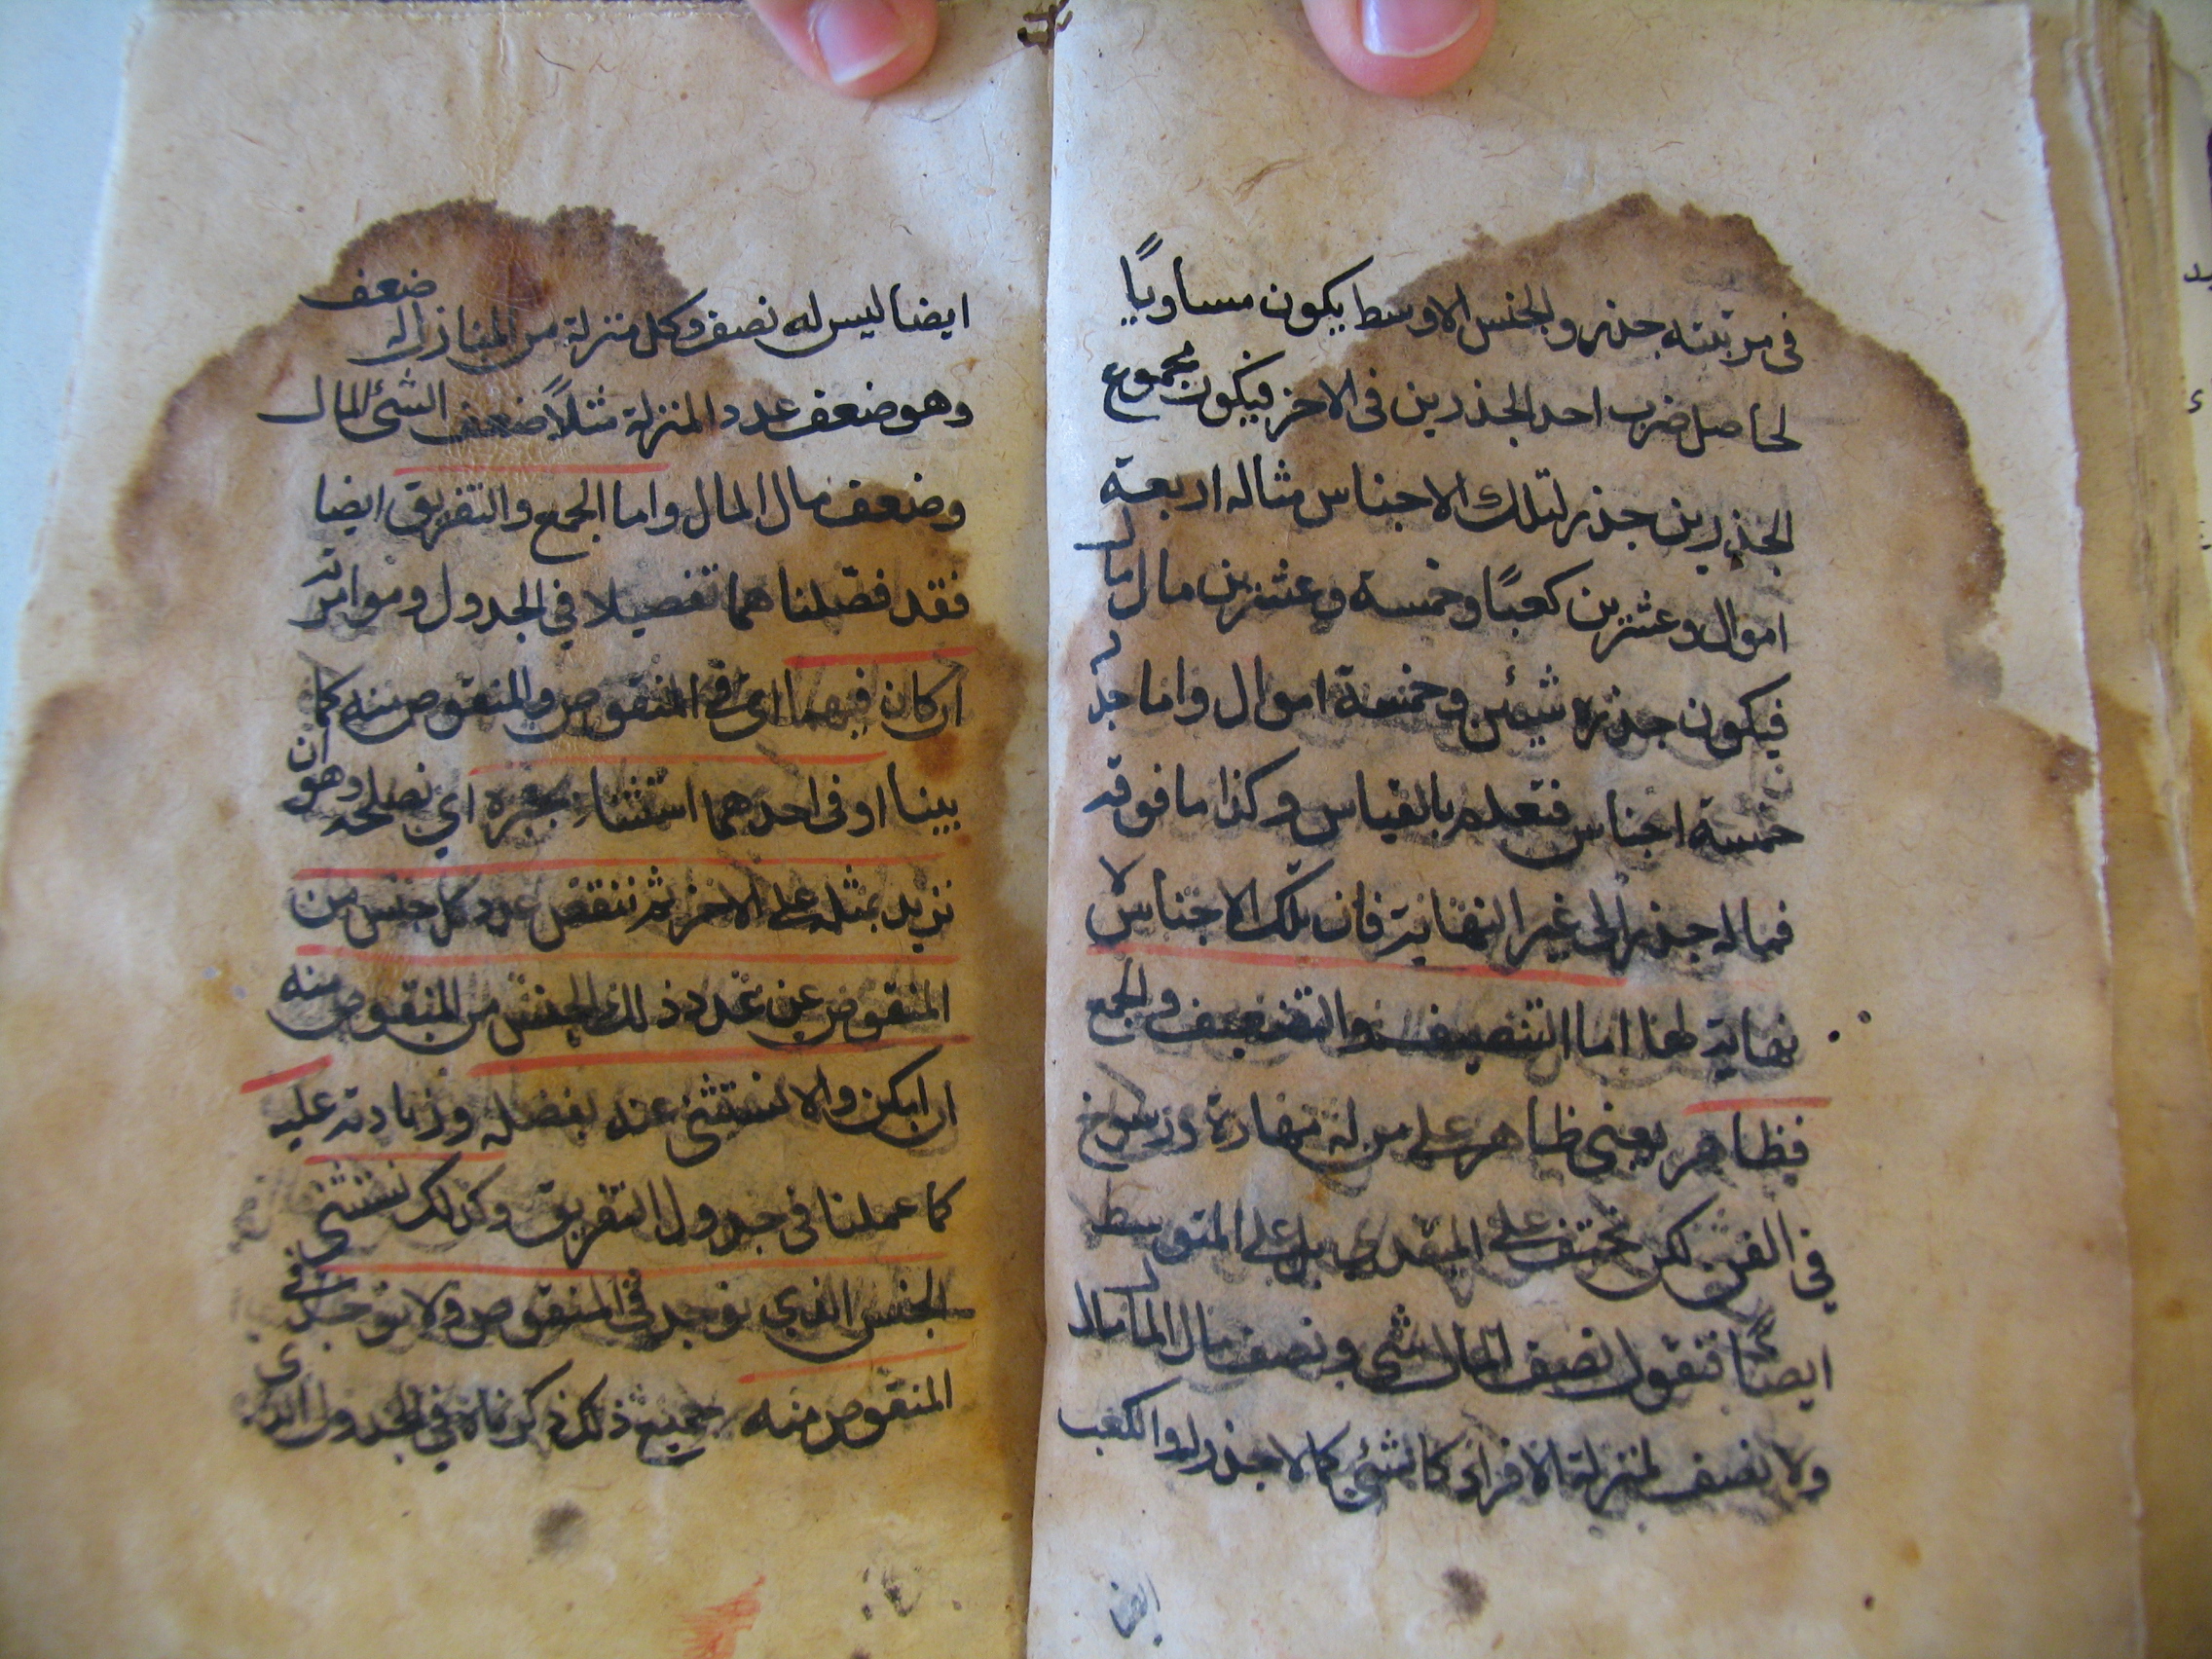 فى مرتبته جذر والجنس الاوسط يكون مساوياً
لحاصل ضرب احد الجذرين فى الاخر فيكون مجموع
الجذرين جذر لتلك الاجناس مثاله اربعة
اموال وعشرين كعبًا وخمسة وعشرين مال مال
فيكون جذره شيئين وخمسة اموال واما جذر
خمسة اجناس فتعلم بالقياس وكذا ما فوقه
فماله جذر الى غير النهاية فان تلك الاجناس لا
نهاية لها اما التنصيف والتضعيف والجمع
فظاهر يعنى ظاهر على من له مهارة ورسوخ
في الفن لكن تختف على المبتدي بل على المتوسط
ايضًا فتقول نصف المال شى ونصف مال المال مال
ولا نصف لمنزلة الافراد كالشئ كما لا جذر له والكعب
ايضا
ايضا ليس له نصف وكل منزلة من المنازل له ضعف
وهو ضعف عدد المنزلة مثلاً ضعف الشئ المال
وضعف مال المال واما الجمع والتفريق ايضا
فقد فصّلناهما تفصيلا في الجدول وموامرته
ان كان فيهما اى في المنقوص والمنقوص منه كما
بينا او فى احدهما استثناء نجبره اي نصلحه وهو ان
نزيد بمثله على الاخر ثم ننقص عدد كل جنس من
المنقوص عن عدد ذلك الجنس من المنقوص منه
ان امكن والا نستثنى عنه بفضله وزيادته عليه
كما عملنا فى جدول التفريق وكذلك نستثنى
الجنس الذي يوجد فى المنقوص ولا يوجد في
المنقوص منه جميع ذلك ذكرناه في الجدول الذى